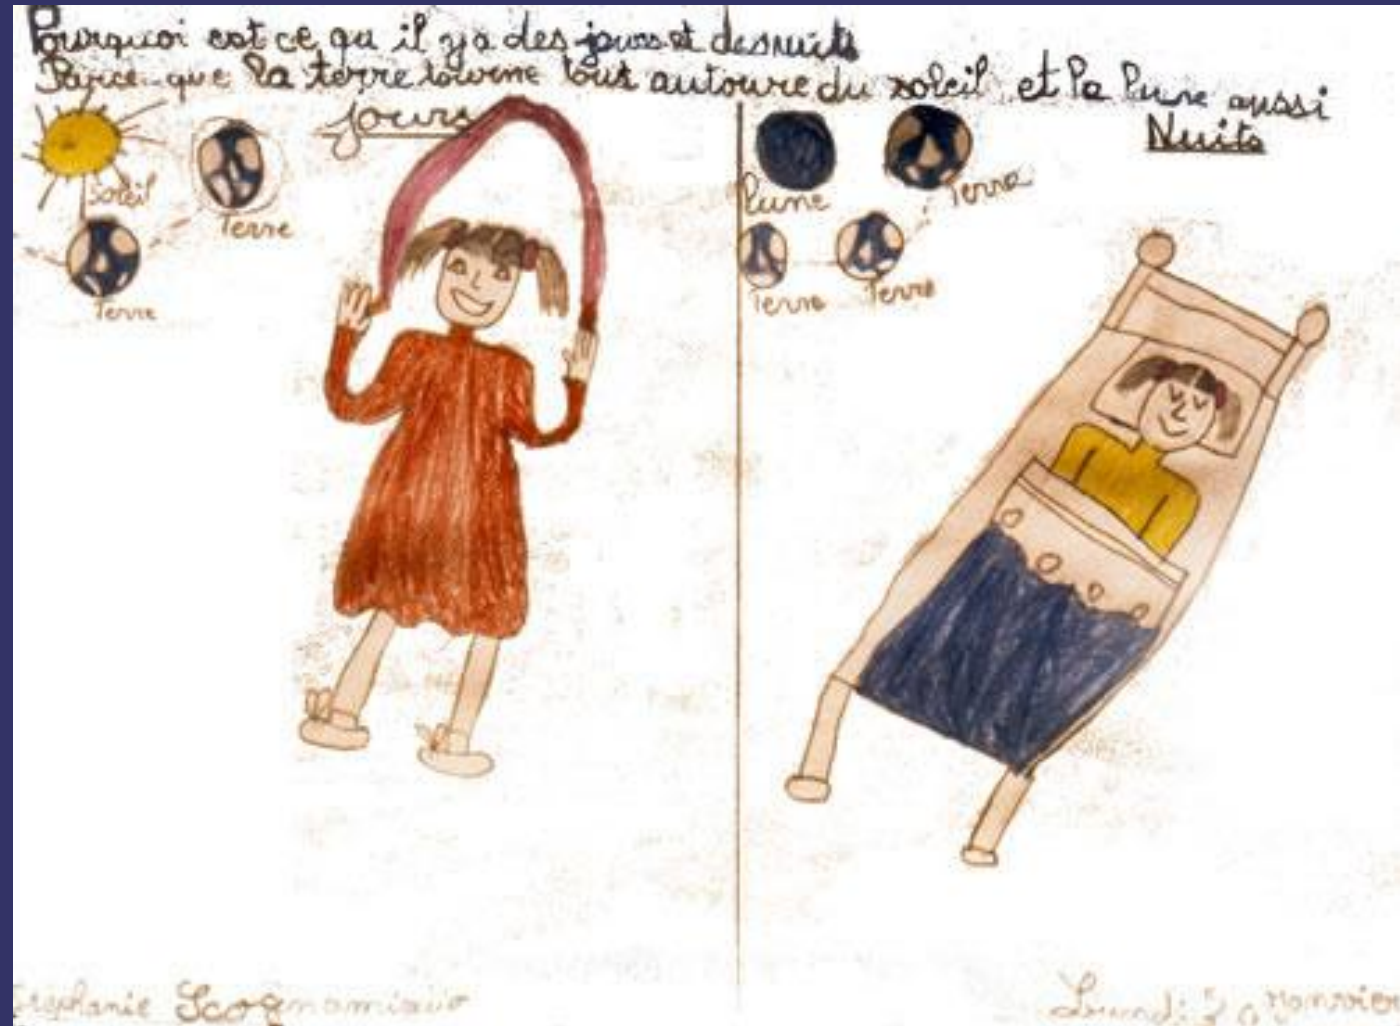 Pourquoi est ce qu il y a des jours et des nuits
Parce que la terre tourne tout autoure du soleil et la lune aussi
jours
Nuits
Soleil
Terre
Terre
Lune
Terre
Terre
Terre
Lundi